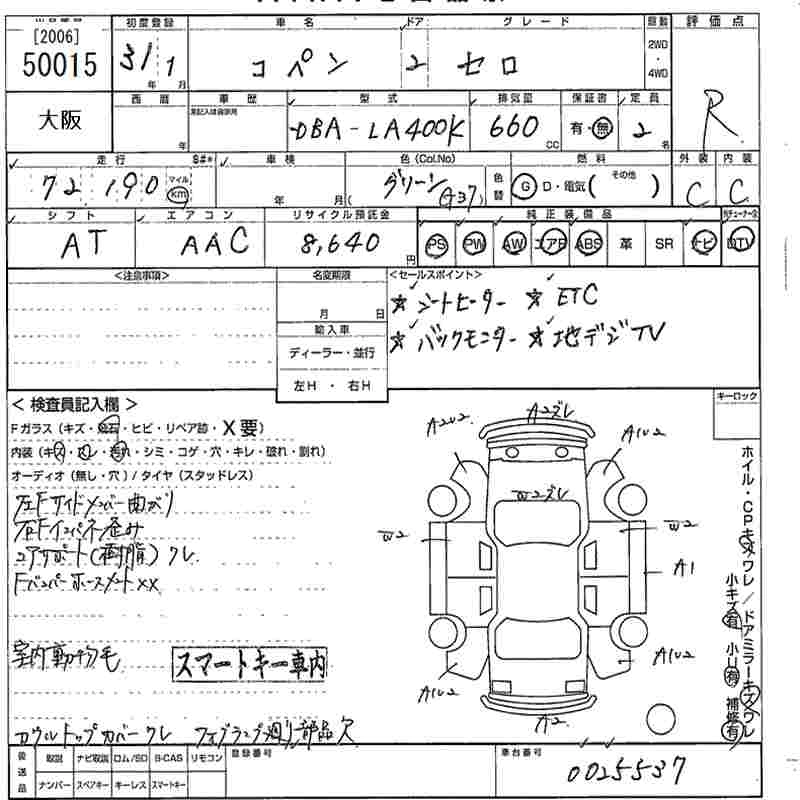 [2006]
50015
初度登録 車名 ドア グレード 駆動 評価点
31 年 1 月 コペン 2 セロ 2WD・4WD R
大阪
西暦 車歴 型式 排気量 保証書 定員
年 DBA-LA400K 660 CC 有・無 2 名
走行 S#* 車検 色(Col.No) 燃料 外装 内装
72,190 マイル km 年 月 グリーン (G37) 色替 G D・電気( その他 ) C C
シフト エアコン リサイクル預託金 純正装備品
AT AAC 8,640 円 PS PW AW エアB ABS 革 SR ナビ DTV
<注意事項> 名変期限 <セールスポイント>
月 日 ☆シートヒーター ☆ETC
輸入車 ☆バックモニター ☆地デジTV
ディーラー・並行
左H ・ 右H
< 検査員記入欄 >
Fガラス (キズ・飛石・ヒビ・リペア跡・X要)
内装 (キズ・汚れ・シミ・コゲ・穴・キレ・破れ・割れ)
オーディオ (無し・穴) / タイヤ (スタッドレス)
左Fサイドメンバー曲がり
右Fインパネ歪み
コアサポート(樹脂)ワレ
Fバンパーホースメントxx
室内動物毛
スマートキー車内
カウルトップカバーワレ フォグランプ廻り部品欠
キーロック
A2ズレ
A2U2 A1U2
W2ズレ
W2 W2
A1
A1U2 A1U2
A2
ホイル・CPキズワレ/ドアミラーキズワレ
小キズ有 小U有 補修有
後送品 取説 ナビ取説 ロム/SD B-CAS リモコン 登録番号 車台番号
ナンバー スペアキー キーレス スマートキー 0025537